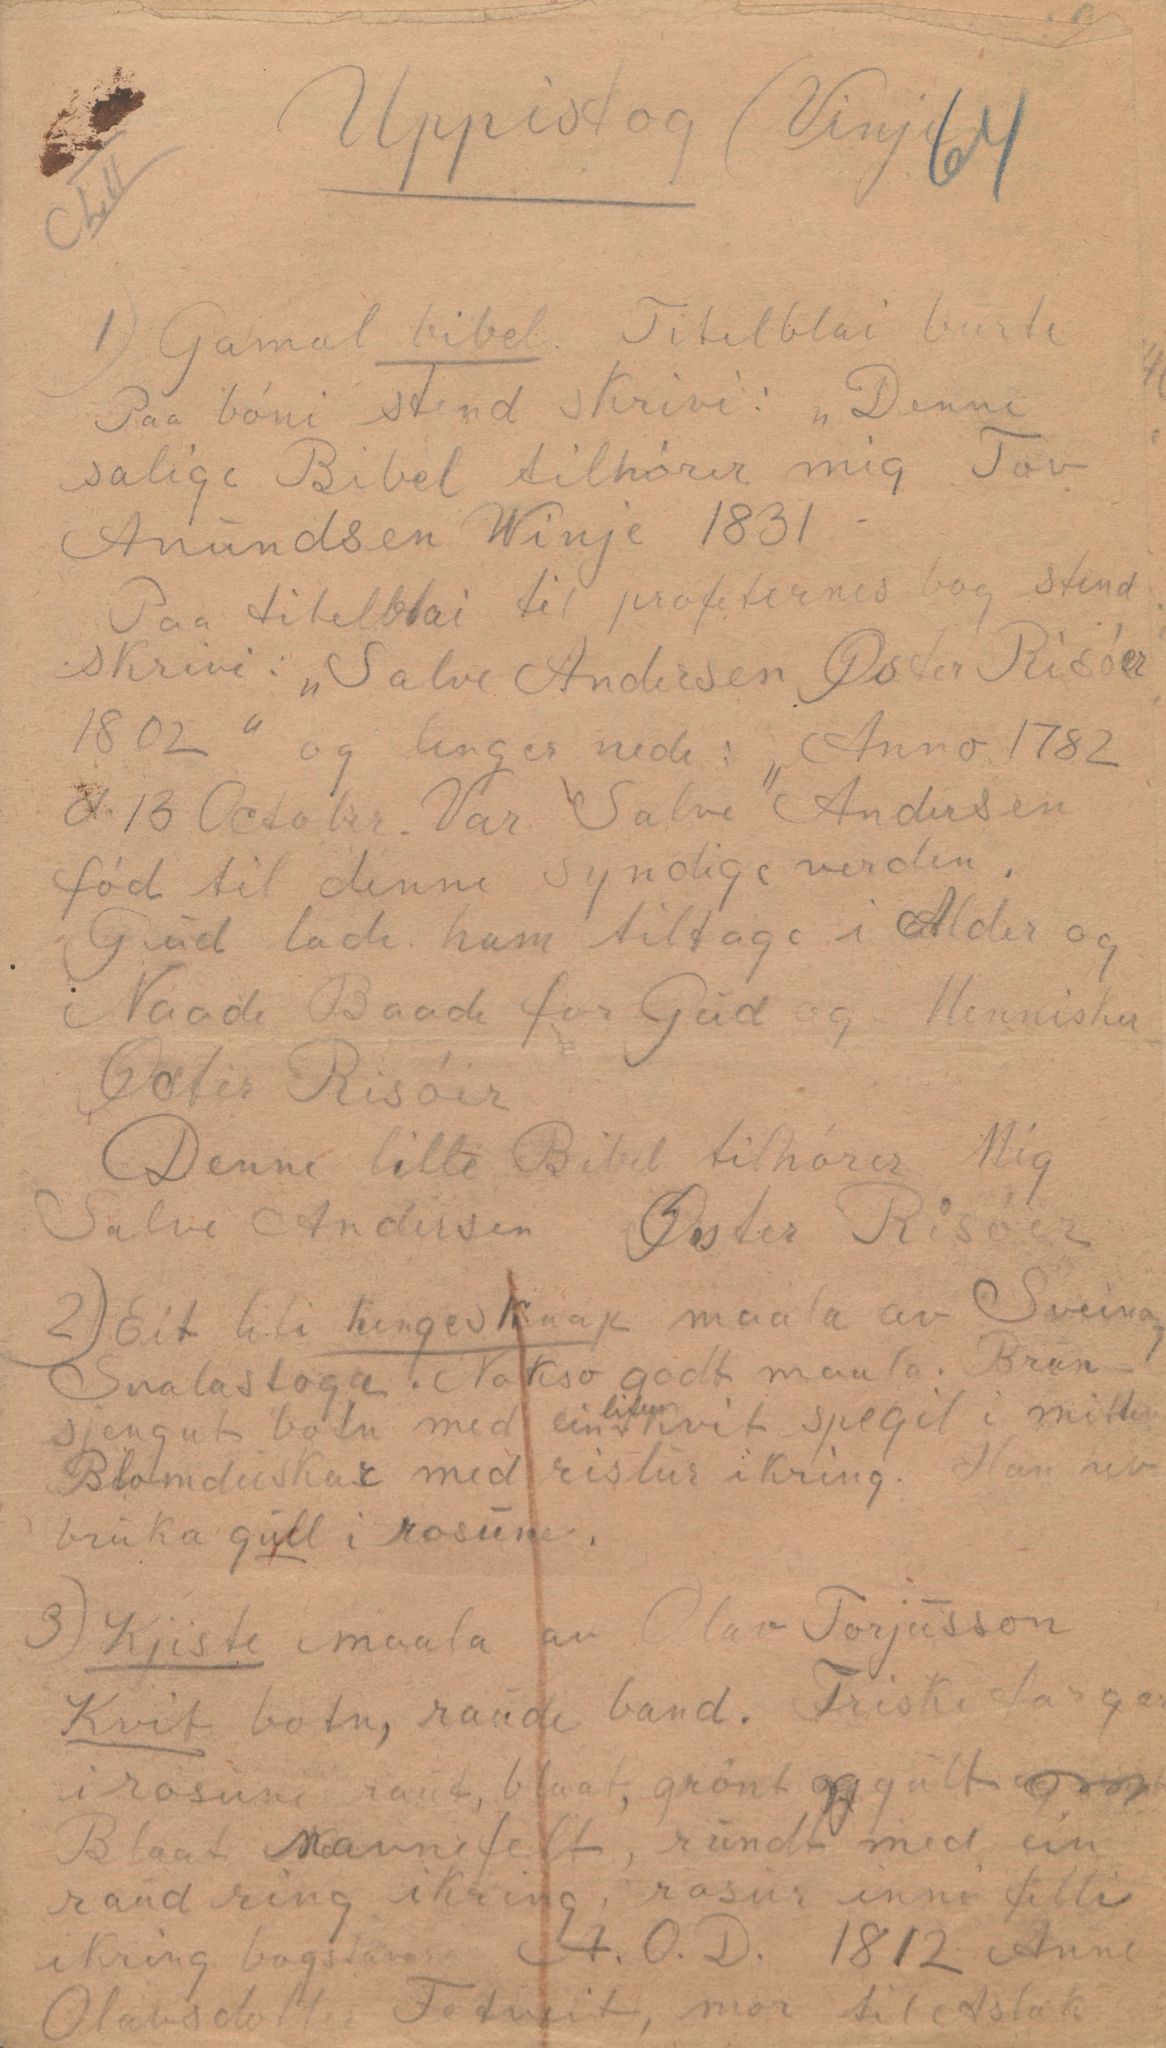 Uppistog (Vinje
64
1) Gamal bibel. Titelblai burte
Paa bóni stend skrivi: „Denne
salige Bibel tilhórer mig Tov
Anŭndsen Winje 1831
Paa titelblai til profeternes bog stend
skrivi: „Salve Andersen Øster Risóer
1802 “ og lenger nede: „Anno 1782
d. 13 October. Var Salve Andersen
fód til denne syndige verden.
Gŭd lade ham tiltage i Alder og
i Naade Baade for Gŭd og Mennisker
Øster Risóer
Denne lille Bibel tilhórer Mig
Salve Andersen Øster Risóer
2) Eit liti hengeskaap maala av Sveinung
Svalastoga. Nokso godt maala. Brŭn
sjengut botn med ein liten kvit spegil i mitten
Blomdŭskar med ristŭr ikring. Han hev
brŭka gŭll i rosŭne.
3) Kjiste maala av Olav Torjŭsson
Kvit botn, raŭde band. Friske fargar
i rosŭne raŭt, blaat, grónt og gŭlt
Blaat Navnefelt, rŭndt med ein
raŭd ring ikring, rosŭr inni felti
ikring bogstavar A. O. D. 1812 Anne
Olavsdotter Tetveit, mor til Aslak